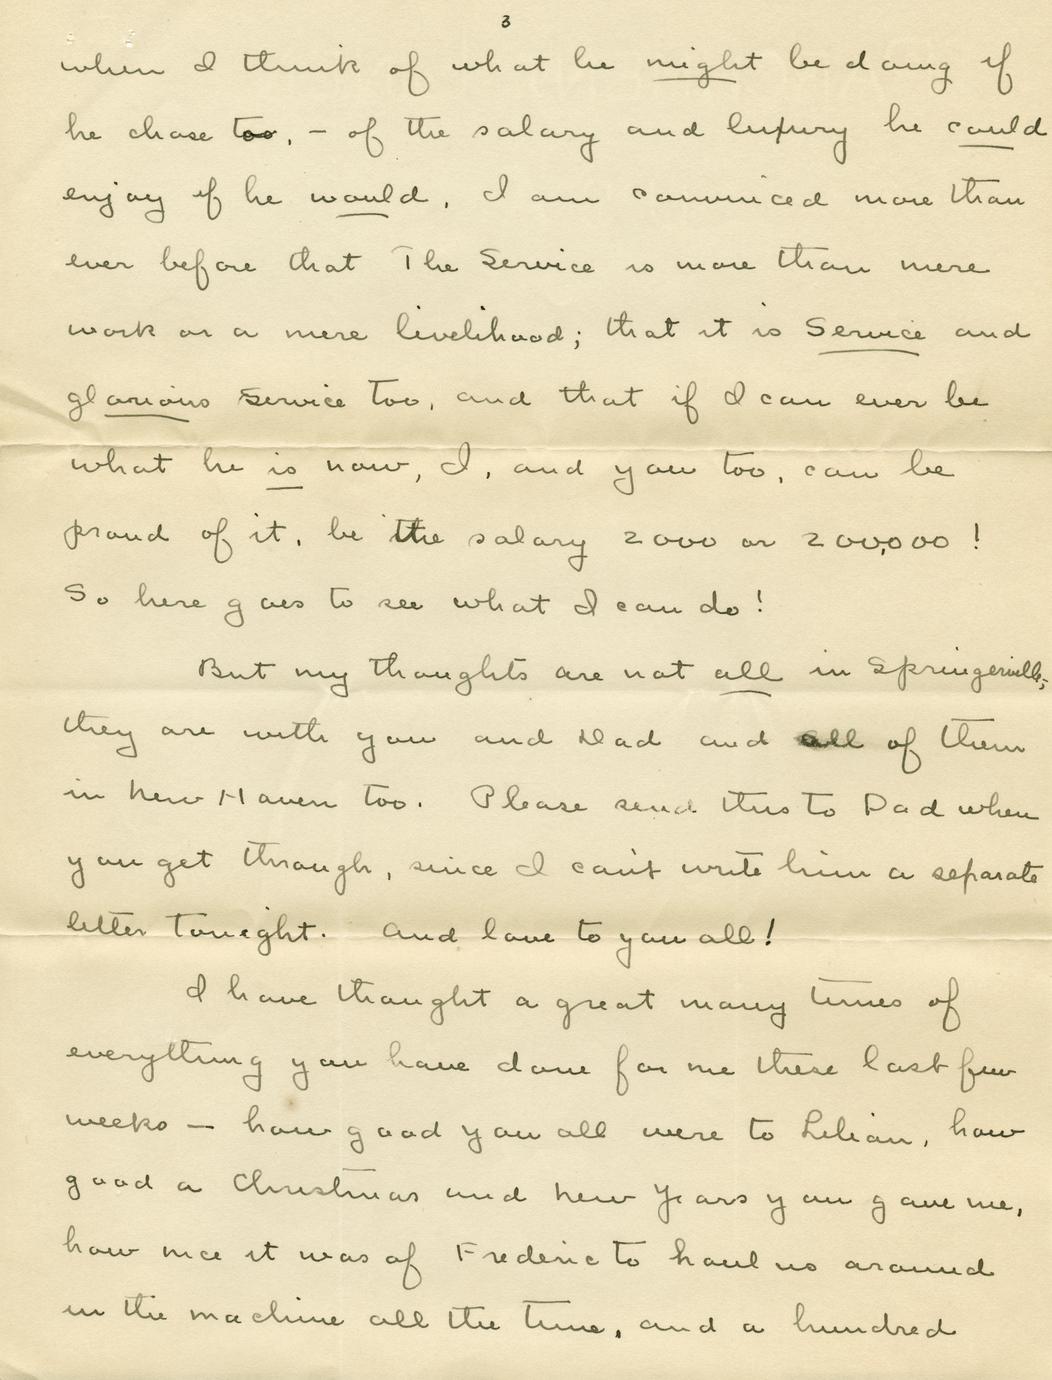 3
when I think of what he might be doing if
he chose too, – of the salary and luxury he could
enjoy if he would, I am convinced more than
ever before that The Service is more than mere
work or a mere livelihood; that it is Service and
glorious Service too, and that if I can ever be
what he is now, I, and you too, can be
proud of it, be the salary 2000 or 200,000!
So here goes to see what I can do!
But my thoughts are not all in Springerville;
they are with you and Dad and all of them
in New Haven too. Please send this to Dad when
you get through, since I can't write him a separate
letter tonight. And love to you all!
I have thought a great many times of
everything you have done for me these last few
weeks — how good you all were to Lilian, how
good a Christmas and New Years you gave me,
how nice it was of Frederic to haul us around
in the machine all the time, and a hundred